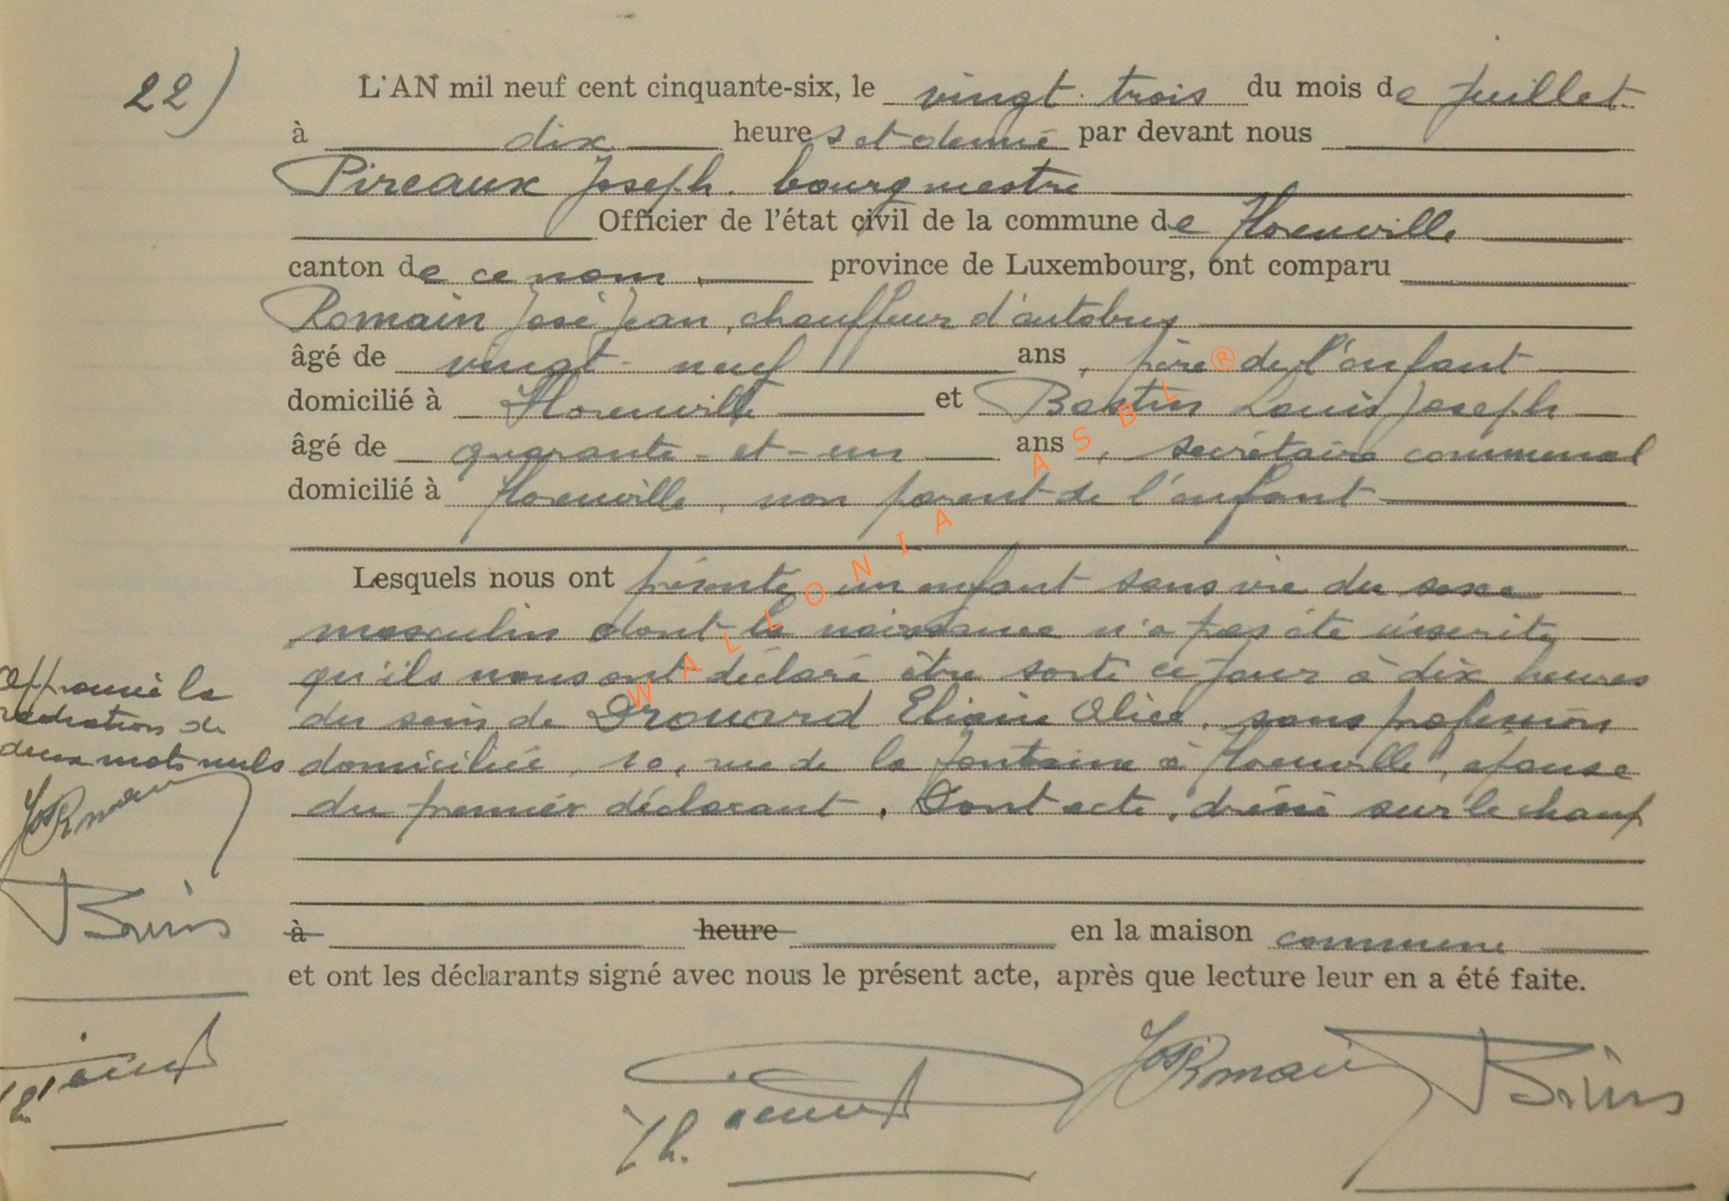 22)
L'AN mil neuf cent cinquante-six, le vingt-trois du mois de Juillet
à dix heures et demie par devant nous
Pireaux Joseph, bourgmestre
Officier de l'état civil de la commune de Florenville
canton de ce nom, province de Luxembourg, ont comparu
Romain José Jean, chauffeur d'autobus
âgé de vingt-neuf ans, père de l'enfant
domicilié à Florenville et Bastin Louis Joseph
âgé de quarante-et-un ans, secrétaire communal
domicilié à Florenville, non parent de l'enfant
Lesquels nous ont présenté un enfant sans vie du sexe
masculin dont la naissance n'a pas été inscrite
qu'ils nous ont déclaré être sorti ce jour à dix heures
du sein de Drouard Eliane Alice, sans profession
domiciliée, 10, rue de la fontaine à Florenville, épouse
du premier déclarant. Dont acte, dressé sur le champ
Approuvé la
radiation de
deux mots nuls
José Romain
à heure en la maison commune
et ont les déclarants signé avec nous le présent acte, après que lecture leur en a été faite.
José Romain
WALLONIA ASBL ®